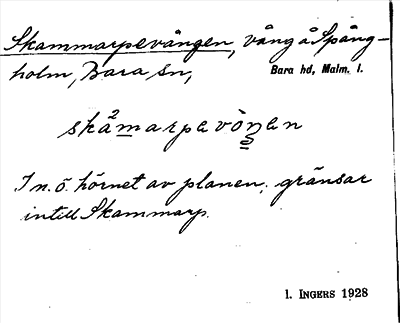 Skammarpevången, vång å Spång-
holm, Bara sn, Bara hd, Malm. l.
skåmarpevòŋen
I n. ö. hörnet av planen, gränsar
intill Skammarp.
I. INGERS 1928